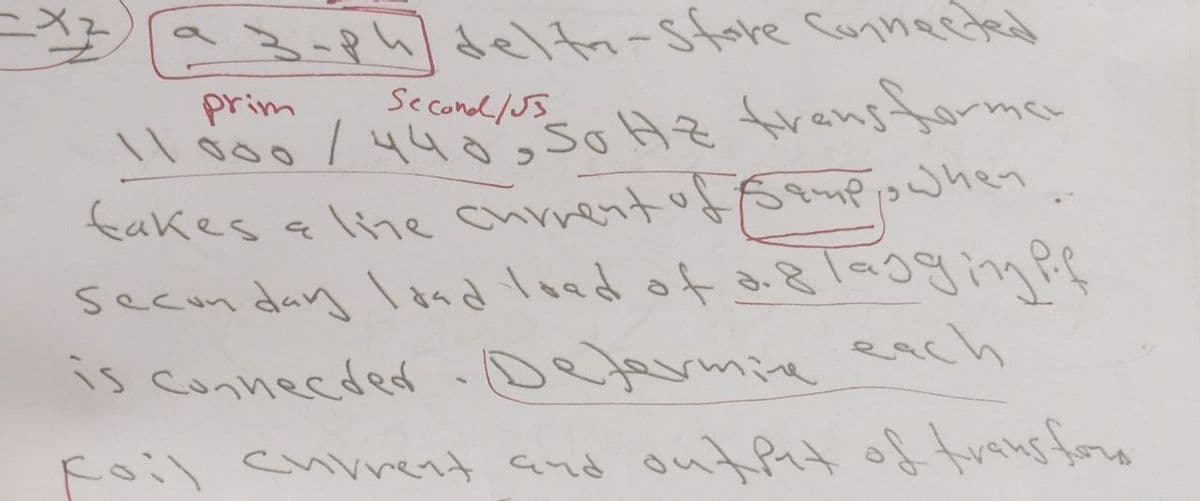 Ex2) a 3-ph delta-stare connected
prim Second/√3
11000 / 440, 50 HZ transformer
takes a line current of 5amp, when
secunday load load of 0.8 lagging P.f
is connecded. Determine each
koil current and outPut of transfor